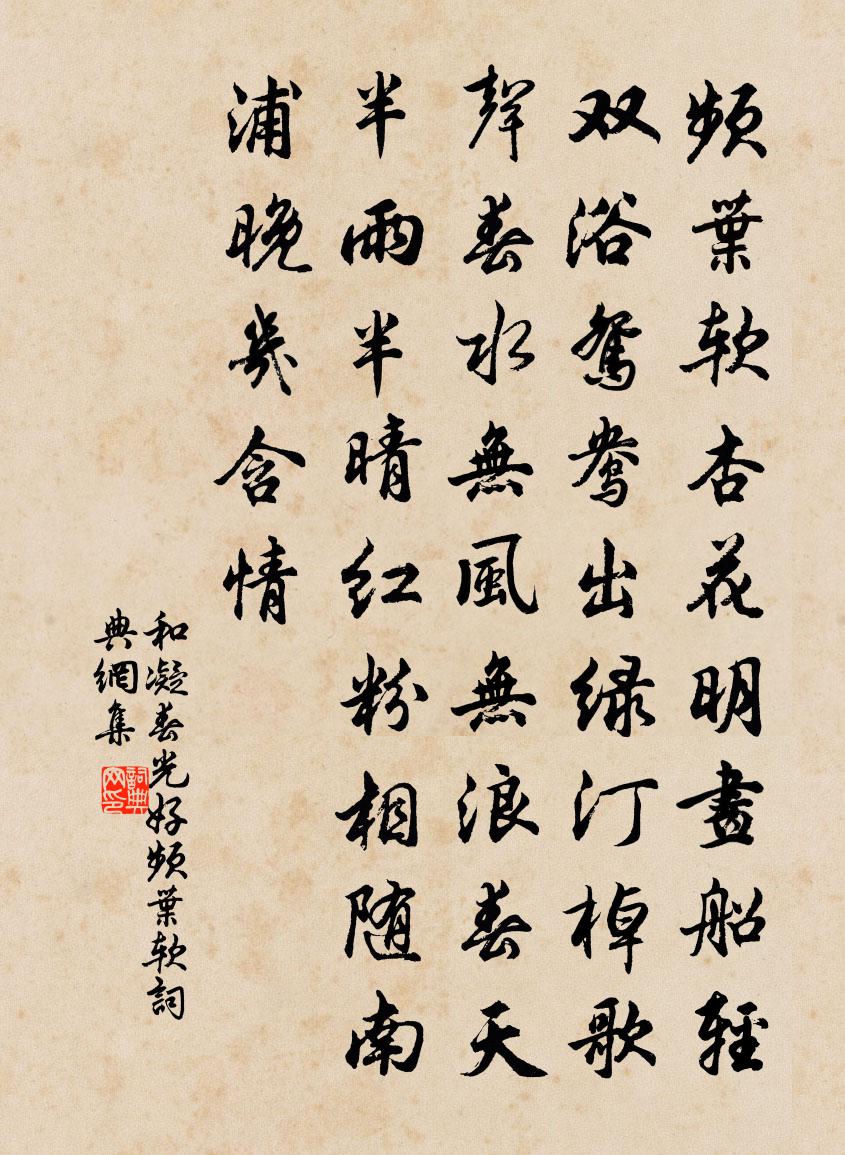 頻葉软杏花明畫船輕
双浴鴛鴦出绿汀棹歌
聲春水無風無浪春天
半雨半晴红粉相随南
浦晚幾含情
和凝春光好頻葉软詞
典網集
詞典
网印